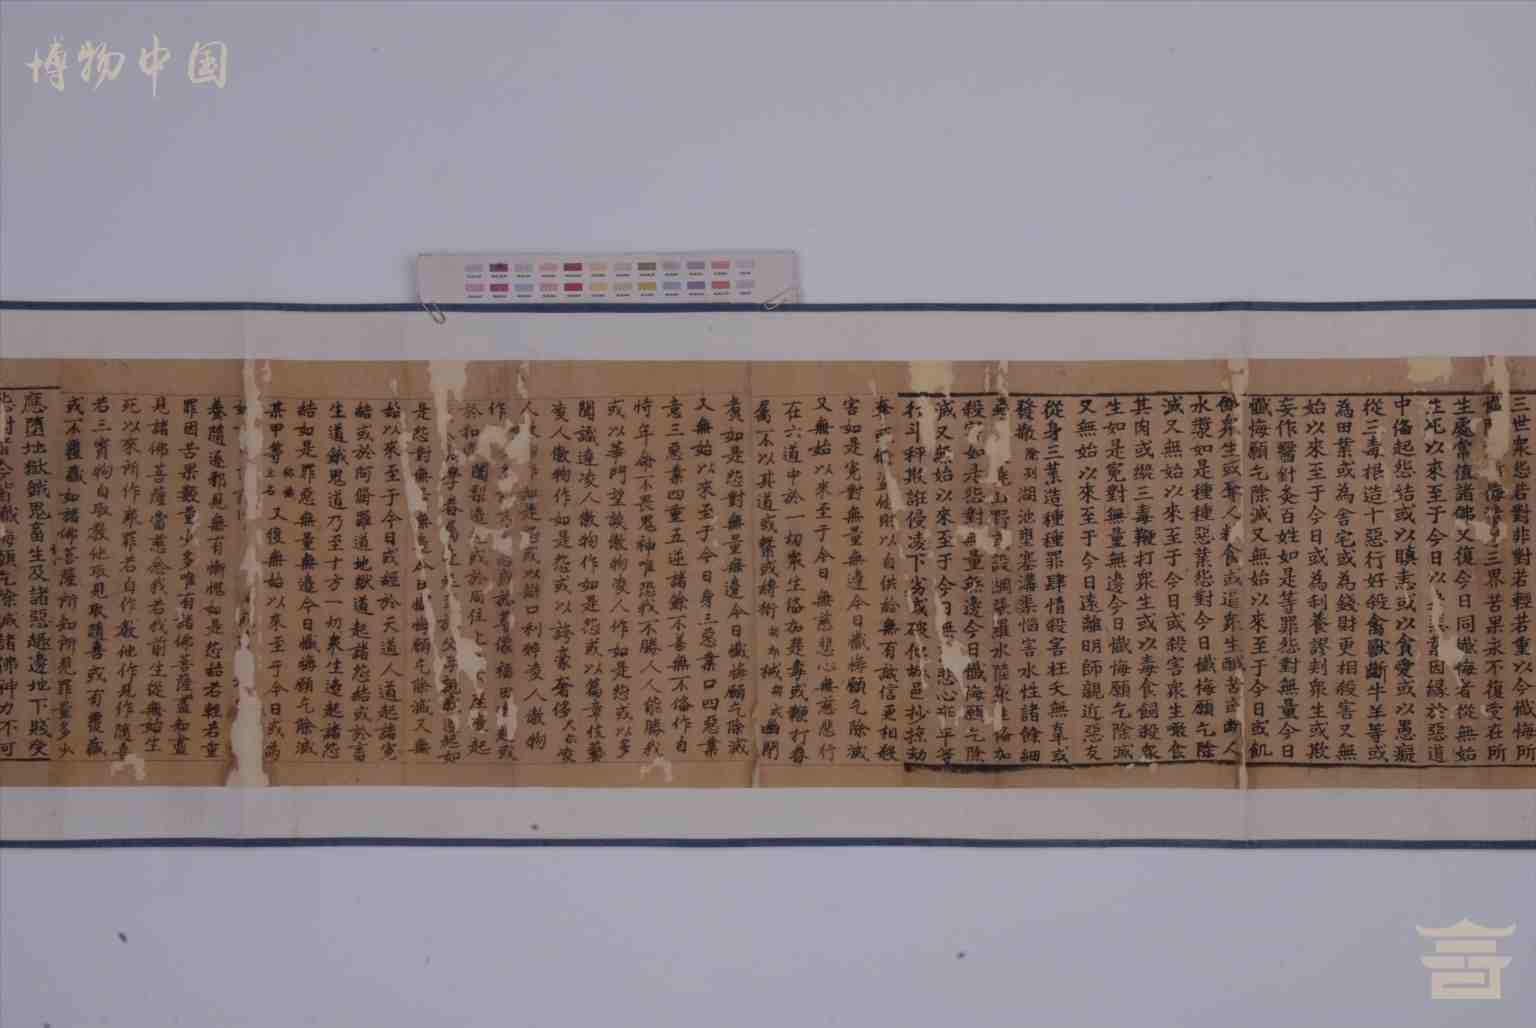 博物中国
三世衆怨若對非對若輕若重以今懺悔所
三界苦果永不復受在所
生處常值諸佛又復今日同懺悔者從無始
生死以來至于今日以 因緣於惡道
中備起怨結或以瞋恚或以貪愛或以愚癡
從三毒根造十惡行好殺禽獸斷牛羊等或
為田業或為舍宅或為錢財更相殺害又無
始以來至于今日或為利養謬刾衆生或欺
妄作醫針灸百姓如是等罪怨對無量今日
懺悔願乞除滅又無始以來至于今日或飢
衆生或奪人粮食或逼衆生鹹苦或斷人
水漿如是種種惡業怨對今日懺悔願乞除
滅又無始以來至于今日或殺害衆生噉食
其肉或縱三毒鞭打衆生或以毒食飼殺衆
生如是寃對無量無邊今日懺悔願乞除滅
又無始以來至于今日遠離明師親近惡友
從身三業造種種罪肆情殺害枉夭無辜或
發撤 湖池壅塞溝渠惱害水性諸餘細
山野 設網 羅水陸衆生備加
殺害如是怨對無量無邊今日懺悔願乞除
滅又無始以來至于今日無慈悲心 平等
行斗秤欺誑侵凌下劣或破他 邑抄掠劫
奪 財以自供給無有誠信更相殺
害如是寃對無量無邊今日懺悔願乞除滅
又無始以來至于今日無慈悲心無慈悲行
在六道中於一切衆生備加楚毒或鞭打眷
屬不以其道或繫或縛 幽閉
責如是怨對無量無邊今日懺悔願乞除滅
又無始以來至于今日身三惡業口四惡業
意三惡業四重五逆諸餘不善無不備作自
恃年命不畏鬼神唯恐我不勝人人能勝我
或以華門望族傲物凌人作如是怨或以多
聞識達凌人傲物作如是怨或以篇章伎藝
凌人傲物作如是怨或以誇豪奢侈
人 或以辯口利 凌人傲物
作 尊像福田
於和 闍梨 或於同住
學眷屬 起
是怨對無 無邊今日懺悔願乞除滅又無
始以來至于今日或經於天道人道起諸寃
結或於阿脩羅道地獄道起諸怨結或於畜
生道餓鬼道乃至十方一切衆生邊起諸怨
結如是罪惡無量無邊今日懺悔願乞除滅
某甲等 又復無始以來至于今日或為
養隨逐邪見無有慚愧如是怨結若輕若重
罪因苦果數量少多唯有諸佛菩薩盡知盡
見諸佛菩薩當慈念我若我前生從無始生
死以來所作衆罪若自作教他作見作隨喜
若三寶物自取教他取見取隨喜或有覆藏
或不覆藏如諸佛菩薩所知所見罪量多少
應墮地獄餓鬼畜生及諸惡趣邊地下賤受
今皆懺悔願乞除滅諸佛神力不可